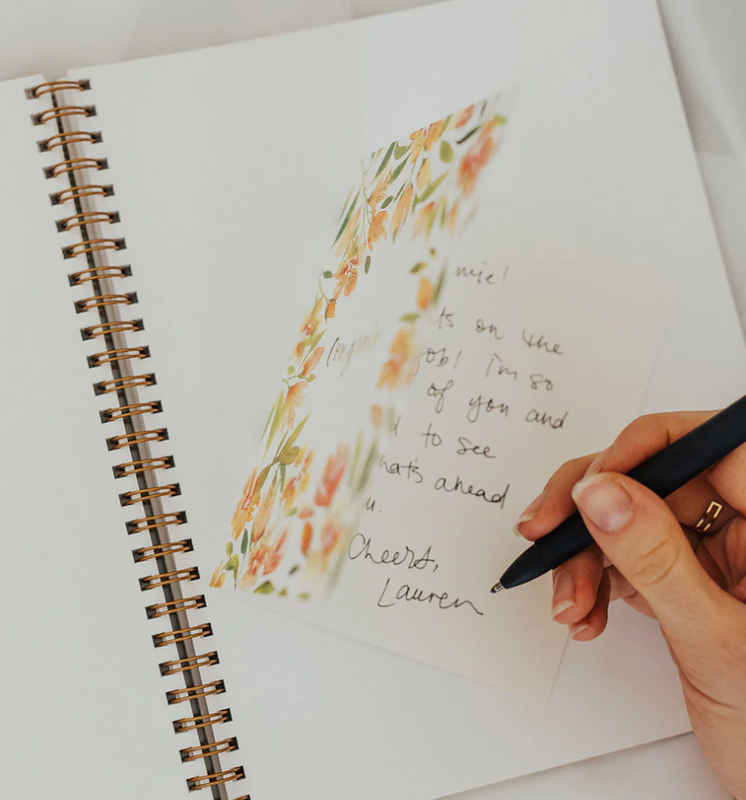 mie!
ts on the
job! i'm so
of you and
to see
hat's ahead
u.
Cheers,
Lauren